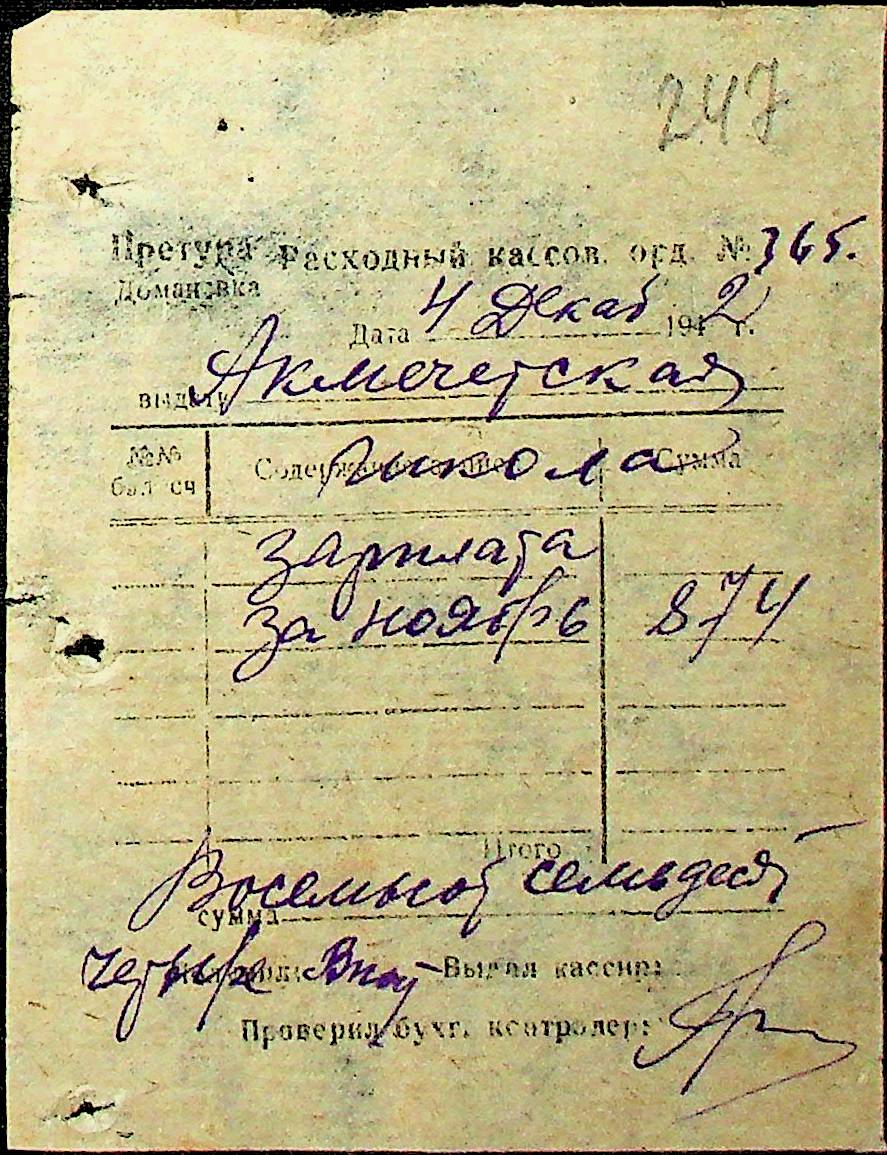 247
Претура Расходный кассов. орд. № 365.
Домановка
Дата 4 Декаб 1942 г.
выдать Акмечетская
школа
№№ бал. сч Содержание Сумма
зарплата
за ноябрь 874
Итого
Восемьсот семьдесят
сумма
четыре
Выдал кассир:
Проверил бухг. контролер: